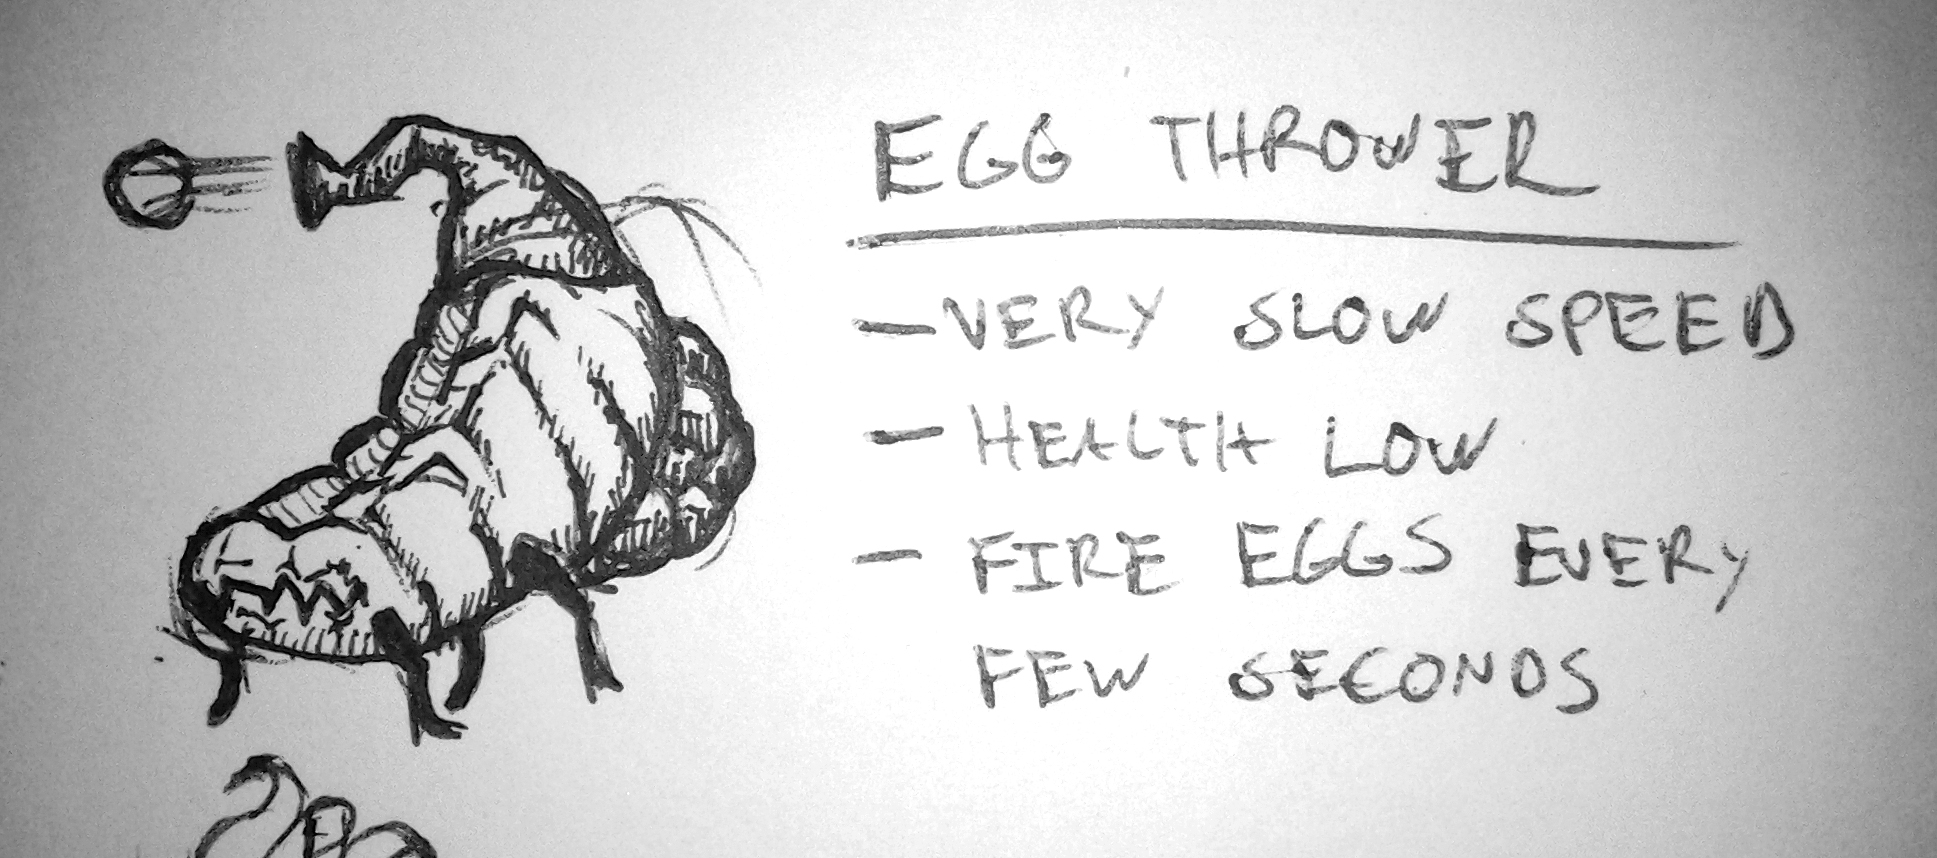 EGG THROWER
- VERY SLOW SPEED
- HEALTH LOW
- FIRE EGGS EVERY
FEW SECONDS